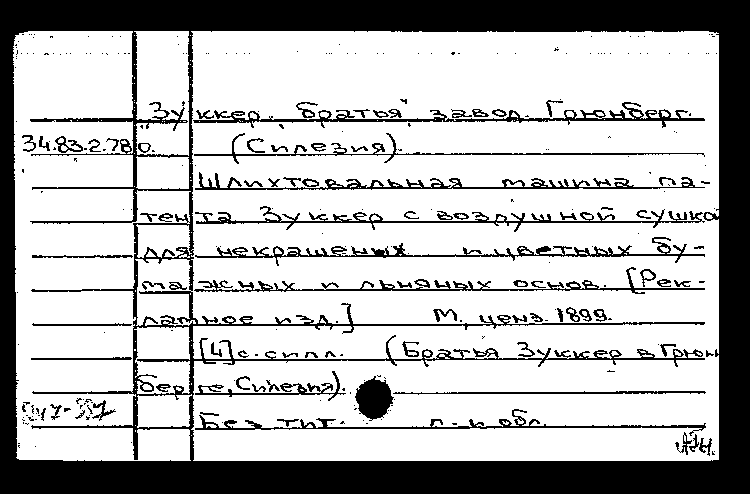 "Зуккер, братья", завод. Грюнберг
34.83.2.780. (Силезия).
Шлихтовальная машина па-
тента Зуккер с воздушной сушкой
для некрашеных и цветных бу-
мажных и льняных основ. [Рек-
ламное изд.] М., ценз. 1899.
[4] с. с илл. (Братья Зуккер в Грюн
берге, Силезия).
Без тит. л. и обл.